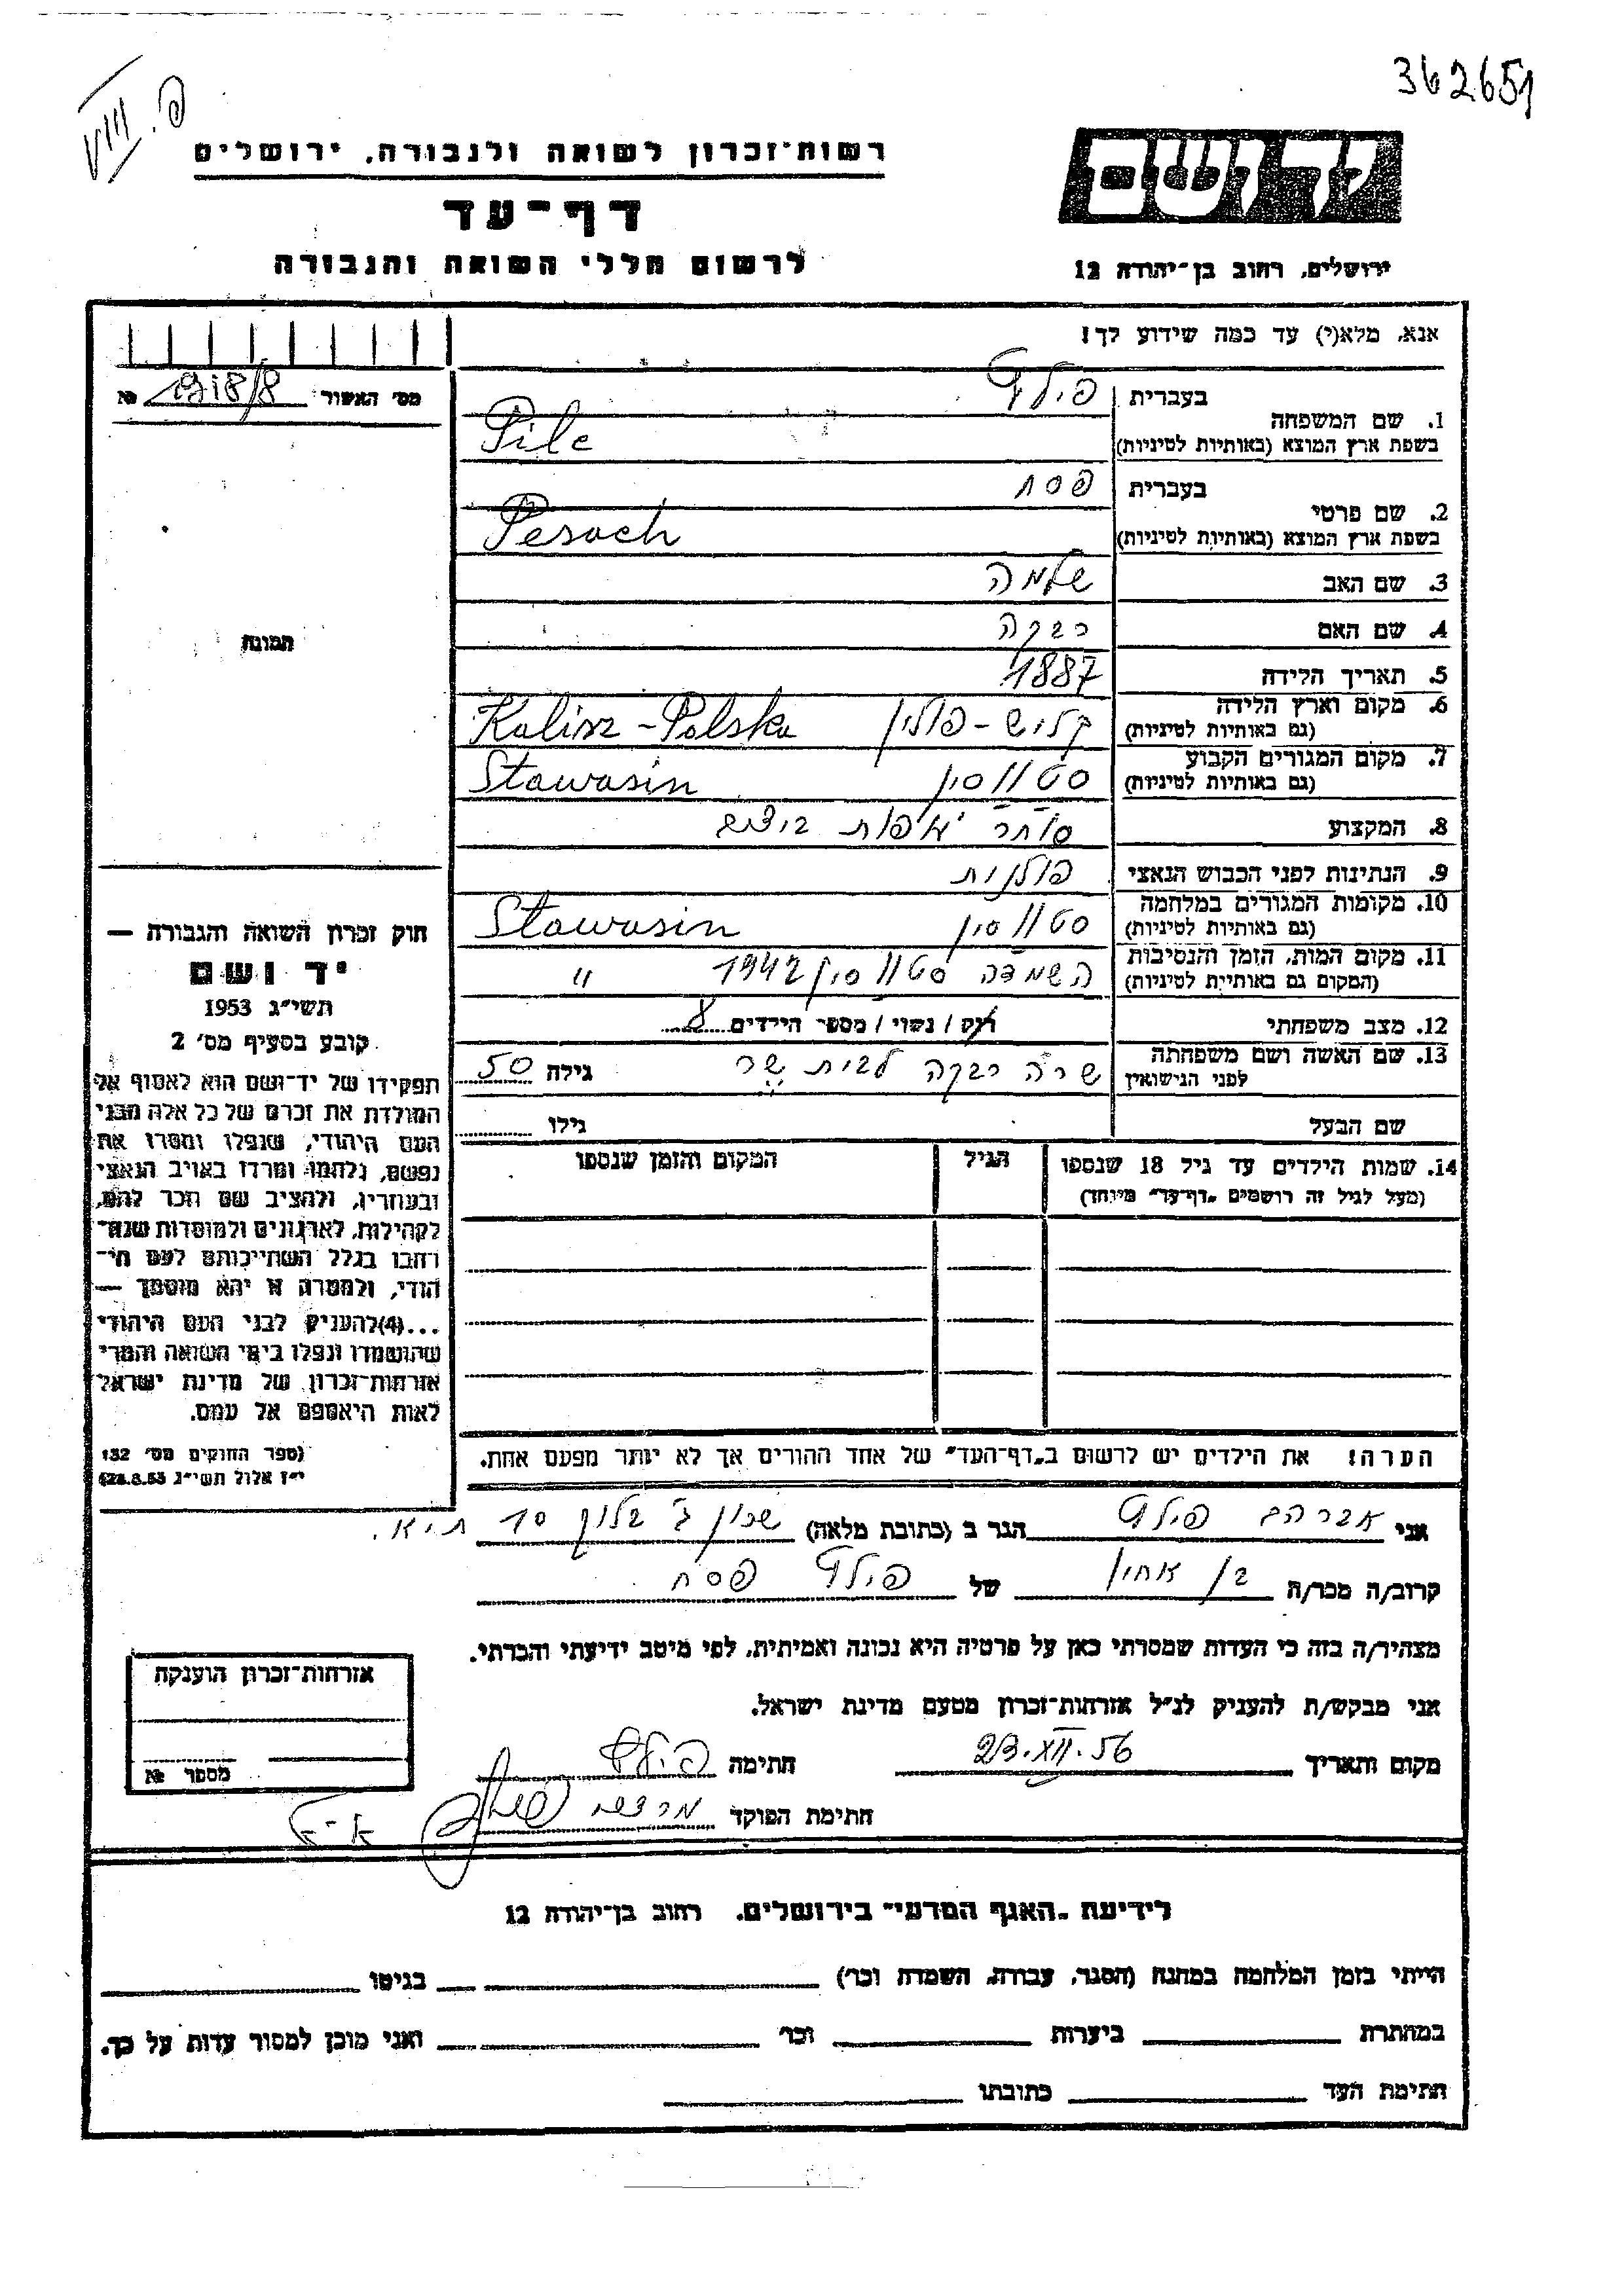 362651
פ. VIII
ידושם
ירושלים, רחוב בן־יהודה 12
רשות־זכרון לשואה ולגבורה, ירושלים
דף־עד
לרשום חללי השואה והגבורה
אנא, מלא(י) עד כמה שידוע לך!
מס׳ האשור 1918/8 №
תמונה
1. שם המשפחה
בעברית
בשפת ארץ המוצא (באותיות לטיניות)
Pilc
2. שם פרטי
בעברית פסח
בשפת ארץ המוצא (באותיות לטיניות)
Pesach
3. שם האב שלמה
4. שם האם רבקה
5. תאריך הלידה 1887
6. מקום וארץ הלידה
(גם באותיות לטיניות)
קליש - פולין Kalisz - Polska
7. מקום המגורים הקבוע
(גם באותיות לטיניות)
סטווסין Stawasin
8. המקצוע סוחר
9. הנתינות לפני הכבוש הנאצי פולנית
10. מקומות המגורים במלחמה
(גם באותיות לטיניות)
סטווסין Stawasin
11. מקום המות, הזמן והנסיבות
(המקום גם באותיות לטיניות)
השמדה סטווסין 1942 "
12. מצב משפחתי רוק / נשוי / מספר הילדים 8
13. שם האשה ושם משפחתה
לפני הנישואין
שרה רבקה לבית שר גילה 50
שם הבעל גילו
14. שמות הילדים עד גיל 18 שנספו
(מעל לגיל זה רושמים „דף־עד״ מיוחד)
הגיל
המקום והזמן שנספו
הערה! את הילדים יש לרשום ב„דף־העד״ של אחד ההורים אך לא יותר מפעם אחת.
חוק זכרון השואה והגבורה —
יד ושם
תשי״ג 1953
קובע בסעיף מס׳ 2
תפקידו של יד־ושם הוא לאסוף אל
המולדת את זכרם של כל אלה מבני
העם היהודי, שנפלו ומסרו את
נפשם, נלחמו ומרדו באויב הנאצי
ובעוזריו, ולהציב שם וזכר להם,
לקהילות, לארגונים ולמוסדות שנח־
רבו בגלל השתייכותם לעם הי־
הודי, ולמטרה זו יהא מוסמך —
...(4) להעניק לבני העם היהודי
שהושמדו ונפלו בימי השואה והמרי
אזרחות־זכרון של מדינת ישראל
לאות היאספם אל עמם.
(ספר החוקים מס׳ 132
י״ז אלול תשי״ג 28.8.53)
אני אברהם הגר ב (כתובת מלאה) שכון ג׳ בלוק 10
קרוב/ה מכר/ה בן אחין של פסח
מצהיר/ה בזה כי העדות שמסרתי כאן על פרטיה היא נכונה ואמיתית, לפי מיטב ידיעתי והכרתי.
אני מבקש/ת להעניק לנ״ל אזרחות־זכרון מטעם מדינת ישראל.
מקום ותאריך 23.XII.56 חתימה
חתימת הפוקד
אזרחות־זכרון הוענקה
מספר №
לידיעת „האגף המדעי״ בירושלים. רחוב בן־יהודה 12
הייתי בזמן המלחמה במחנה (הסגר, עבודה, השמדה וכו׳) בגיטו
במחתרת ביערות וכו׳ ואני מוכן למסור עדות על כך.
חתימת העד כתובתו